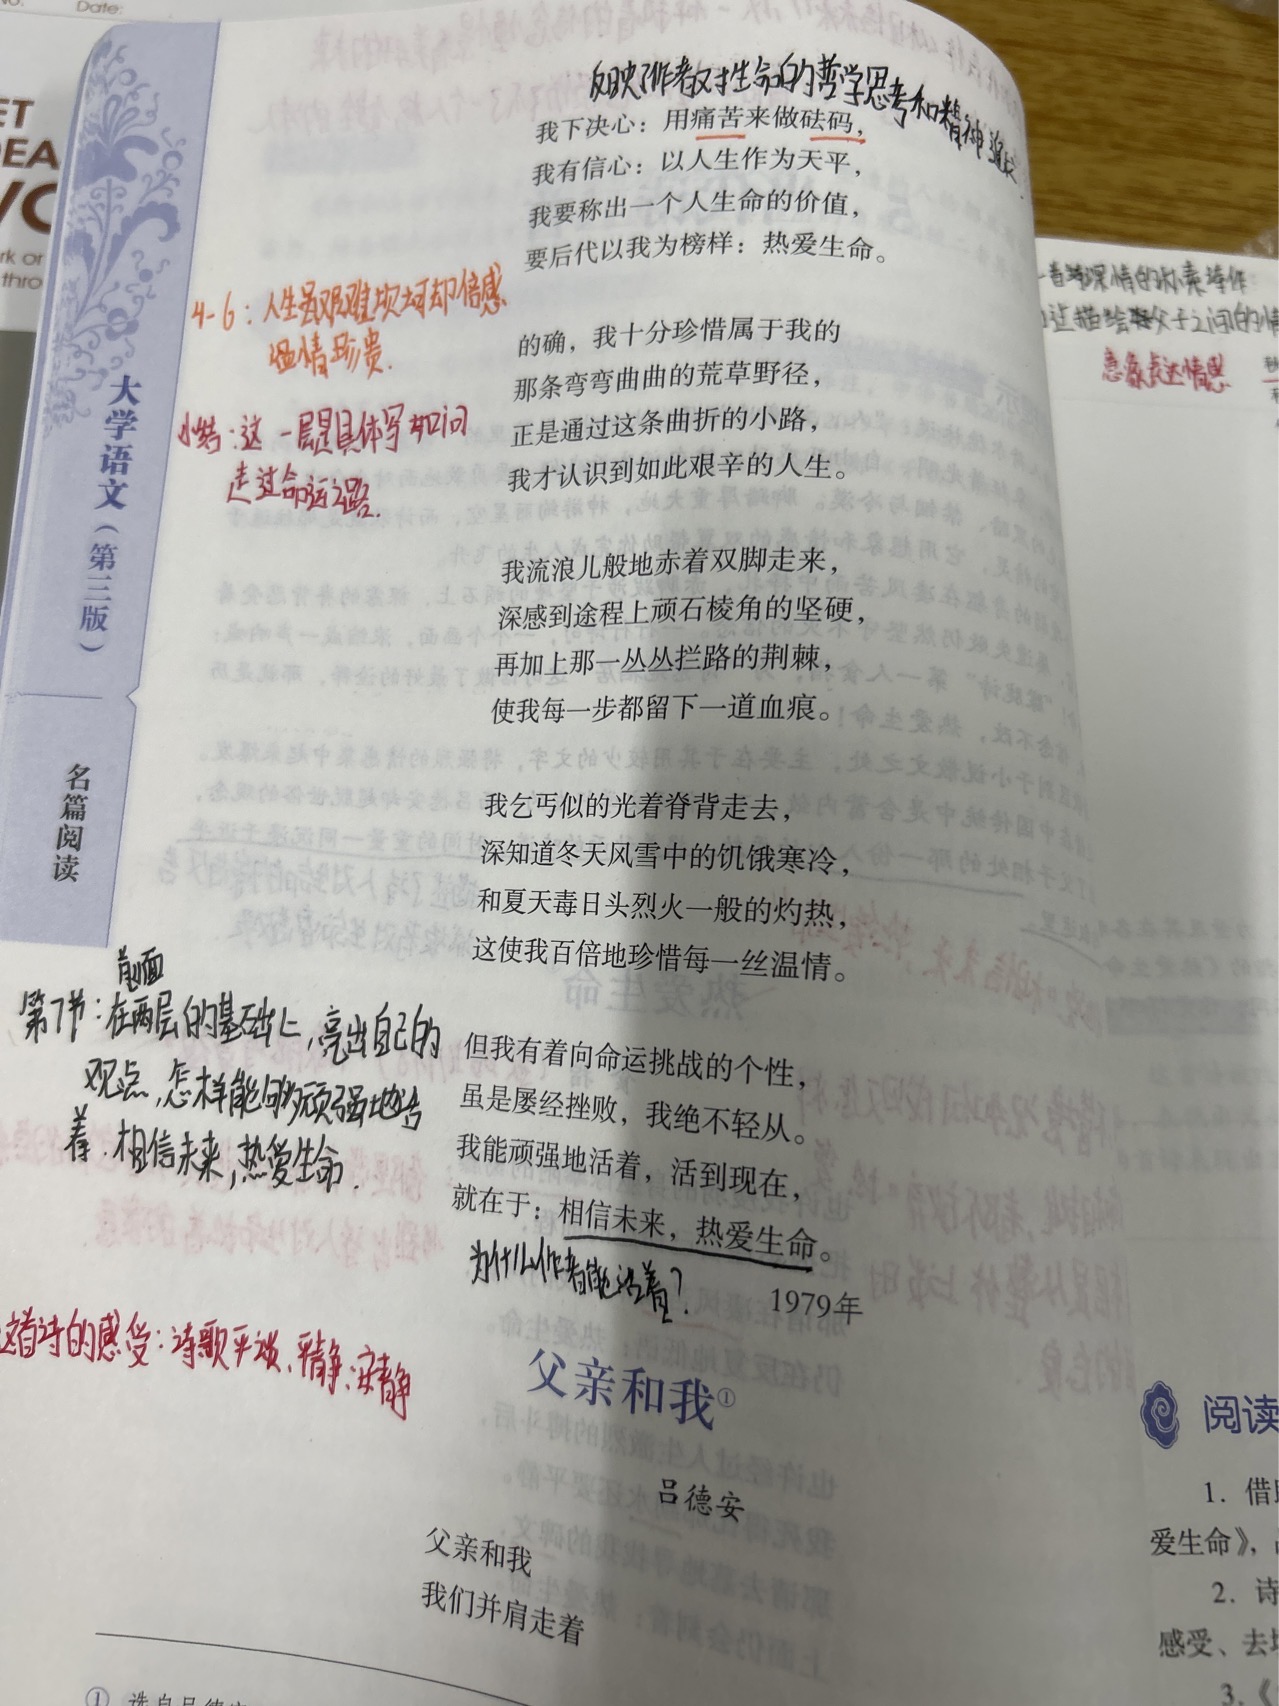 Date:
反映了作者对生命的哲学思考和精神追求
我下决心：用痛苦来做砝码，
我有信心：以人生作为天平，
我要称出一个人生命的价值，
要后代以我为榜样：热爱生命。
4-6：人生虽艰难坎坷却倍感
温情珍贵.
的确，我十分珍惜属于我的
那条弯弯曲曲的荒草野径，
正是通过这条曲折的小路，
我才认识到如此艰辛的人生。
小结：这一层是具体写如何
走过命运之路.
我流浪儿般地赤着双脚走来，
深感到途程上顽石棱角的坚硬，
再加上那一丛丛拦路的荆棘，
使我每一步都留下一道血痕。
我乞丐似的光着脊背走去，
深知道冬天风雪中的饥饿寒冷，
和夏天毒日头烈火一般的灼热，
这使我百倍地珍惜每一丝温情。
前面
第7节：在两层的基础上，亮出自己的
观点，怎样能够顽强地活
着.相信未来，热爱生命.
但我有着向命运挑战的个性，
虽是屡经挫败，我绝不轻从。
我能顽强地活着，活到现在，
就在于：相信未来，热爱生命。
为什么作者能活着？
1979年
这首诗的感受：诗歌平淡、平静、安静
父亲和我①
吕德安
父亲和我
我们并肩走着
大学语文（第三版）
名篇阅读
意象表达情感
阅读
1. 借
爱生命》，
2. 诗
感受、去
3.《